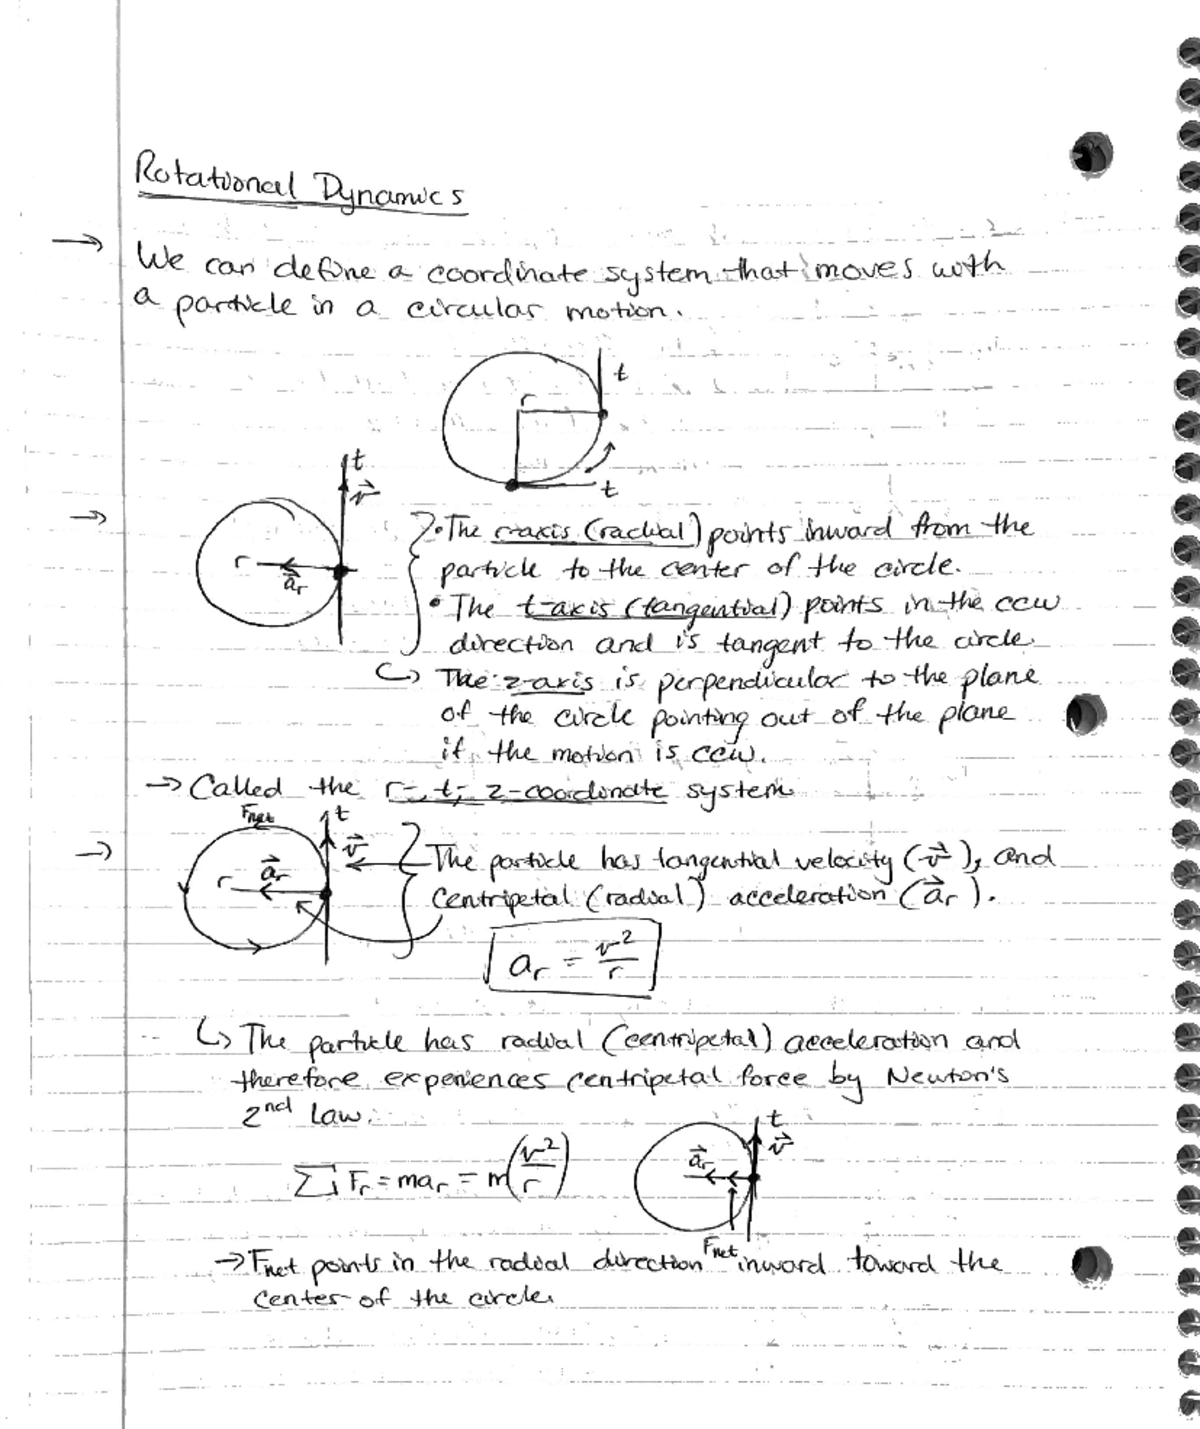 Rotational Dynamics
→ We can define a coordinate system that moves with
a particle in a circular motion.
t
r
t
t
v⃗
→ r a⃗r
• The r-axis (radial) points inward from the
particle to the center of the circle.
• The t-axis (tangential) points in the ccw
direction and is tangent to the circle.
↳ The z-axis is perpendicular to the plane
of the circle pointing out of the plane
if the motion is ccw.
→ Called the r-, t-, z-coordinate system
Fnet t
→ r a⃗r v⃗
The particle has tangential velocity (v⃗), and
centripetal (radial) acceleration (a⃗r).
ar = v²/r
↳ The particle has radial (centripetal) acceleration and
therefore experiences centripetal force by Newton's
2nd Law.
t
v⃗
a⃗r
∑ Fr = mar = m(v²/r)
Fnet
→ Fnet points in the radial direction inward toward the
center of the circle.